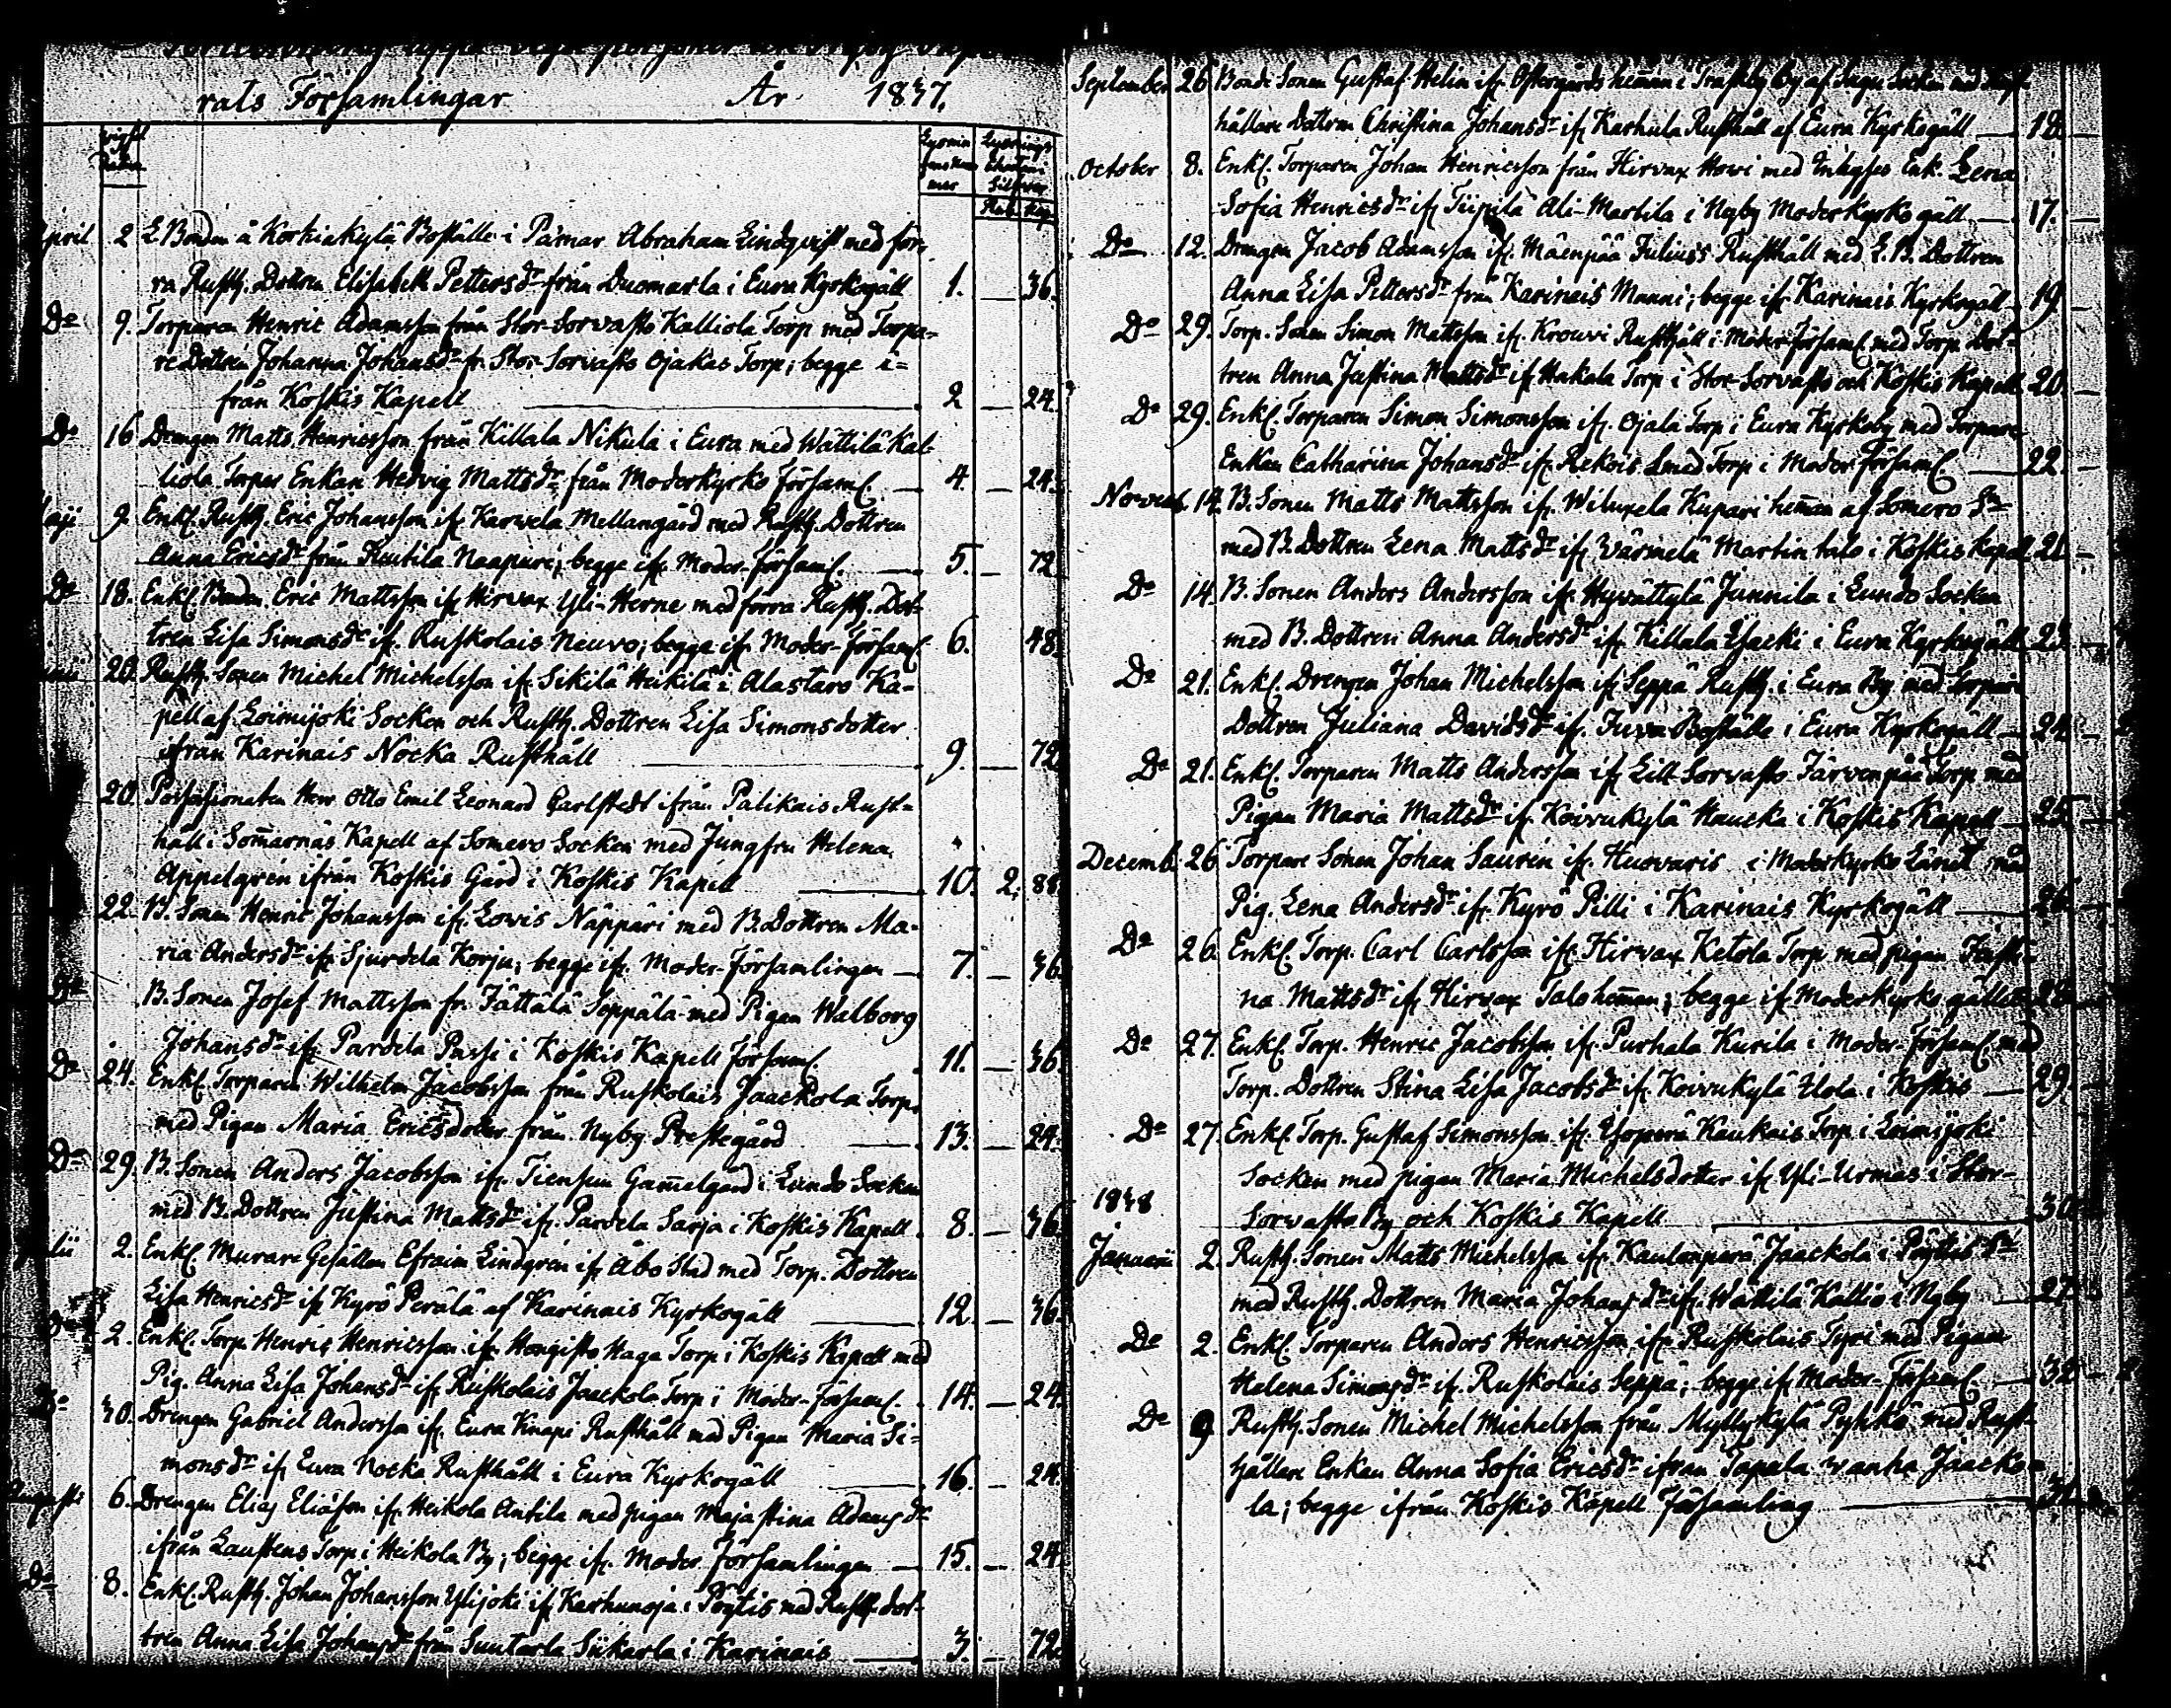 rats Församlingar År 1837.
Lysnings Silfver
Rub. Kop.
April 2 L. Bonden å Korkiakylä Boställe i Pämar Abraham Lindqvist med för-
ra Rusth. Dottren Elisabeth Pettersdr från Duomarla i Eura Kyrkogäll 1. — 36.
Do 9. Torparen Henric Adamsson från Stor-Sorvasto Kalliola Torp med Torpa-
re Dottren Johanna Johansdr fr. Stor-Sorvasto Ojakas Torp; begge i-
från Koskis Kapell 2 — 24.
Do 16 Drengen Matts Henricsson från Killala Nikula i Eura med Wättilä Kal-
liola Torpar Enkan Hedvig Mattsdr från Moderkyrko Församl. 4. — 24.
Maji 9. Enkl. Rusth. Eric Johansson ifr. Karwela Mellangård med Rusth. Dottren
Anna Ericsdr från Kuutila Naapuri; begge ifr. Moder-Församl. 5. — 72
Do 18. Enkl. Bonden Eric Mattsson ifr Hirvax Yli-Herne med förra Rusth. Dot-
tren Lisa Simonsdr ifr. Ruskolais Neuvo; begge ifr. Moder-Församl. 6. 48.
20. Rusth. Sonen Michel Michelsson ifr Sikilä Heikilä i Alastaro Ka-
pell af Loimijoki Socken och Rusth. Dottren Lisa Simonsdotter
ifrån Karinais Nocka Rusthåll 9. — 72
20. Possessionaten Herr Otto Emil Leonard Carlstedt ifrån Palikais Rust-
håll i Somarnäs Kapell af Somero Socken med Jungfru Helena
Appelgrén ifrån Koskis Gård i Koskis Kapell 10. 2. 88.
22. B. Sonen Henric Johansson ifr. Lowis Näppäri med B. Dottren Ma-
ria Andersdr ifr Sjurdela Korju; begge ifr. Moder-Församlingen 7. — 36.
B. Sonen Josef Mattsson fr. Jättälä Seppälä med Pigan Walborg
Johansdr ifr Pardela Passi i Koskis Kapell Församl. 11. — 36.
Do 24. Enkl. Torparen Wilhelm Jacobsson från Ruskolais Jaackola Torp
med Pigan Maria Ericsdotter från Nyby Prestegård 13. — 24.
Do 29. B. Sonen Anders Jacobsson ifr. Tiensuu Gamelgård i Lundo Socken
med B. Dottren Justina Mattsdr ifr. Pardela Sarja i Koskis Kapell 8. — 36.
2. Enkl. Murare Gesällen Efraim Lindgrén ifr Åbo Stad med Torp. Dottren
Lisa Henricsdr ifr Kyrö Perälä af Karinais Kyrkogäll 12. — 36.
Do 2. Enkl. Torp. Henric Henricsson ifr. Hongisto Haga Torp i Koskis Kapell med
Pig. Anna Lisa Johansdr ifr Ruskolais Jaackola Torp i Moder-Församl. 14. — 24.
Do 30. Drengen Gabriel Andersson ifr. Eura Knapi Rusthåll med Pigan Maria Si-
monsdr ifr Eura Nocka Rusthåll i Eura Kyrkogäll 16. — 24.
Augusti 6. Drengen Elias Eliasson ifr. Heikola Antila med pigan Maja Stina Adamsdr
ifrån Laustens Torp i Heikola By; begge ifr. Moder Församlingen 15. — 24.
Do 8. Enkl. Rusth. Johan Johansson Ylijoki ifr Karhunoja i Pöytis med Rusth. dot-
tren Anna Lisa Johansdr från Suutarla Siikarla i Karinais 3. — 72.
September 26 Bonde Sonen Gustaf Helin ifr. Östergårds heman i Träskby by af Sagu Socken med Rust-
hållare Dottren Christina Johansdr ifr Karhula Rusthåll af Eura Kyrkogäll 18.
October 8. Enkl. Torparen Johan Henricsson från Hirvax Howi med Inhyses Enk. Lena
Sofia Henricsdr ifr Tiipilä Ali-Martila i Nyby Moderkyrko gäll 17.
Do 12. Drengen Jacob Adamsson ifr. Mäenpää Juliuss Rusthåll med L. B. Dottren
Anna Lisa Pettersdr från Karinais Manni; begge ifr Karinais Kyrkogäll 19.
Do 29. Torp. Sonen Simon Mattsson ifr. Krouvi Rusthåll i Moder-Församl. med Torp. Dot-
tren Anna Justina Mattsdr ifr Hakala Torp i Stor Sorvasto och Koskis Kapell 20.
Do 29. Enkl. Torparen Simon Simonsson ifr. Ojala Torp i Eura Kyrkoby med Torpare
Enkan Catharina Johansdr ifr Rekois Smed Torp i Moder Församl. 22.
Novemb. 14. B. Sonen Matts Mattsson ifr. Wiluxela Kupari heman af Somero Sn
med B. Dottren Lena Mattsdr ifr Wärmelä Martin talo i Koskis kapell 21.
Do 14. B. Sonen Anders Andersson ifr. Hyvättylä Junnila i Lundo Socken
med B. Dottren Anna Andersdr ifr Killala Isacki i Eura Kyrkogäll 23.
Do 21. Enkl. Drengen Johan Michelsson ifr Seppä Rusth. i Eura By med Torpare
Dottren Juliana Davidsdr ifr. Juva Boställe i Eura Kyrkogäll 24
Do 21. Enkl. Torparen Matts Andersson ifr Lill Sorvasto Järvenpää Torp med
Pigan Maria Mattsdr ifr Koivukylä Haucka i Koskis Kapell 25.
Decemb. 26 Torpare Sonen Johan Saurén ifr. Huovaris i Moderkyrko Länet med
Pig. Lena Andersdr ifr Kyrö Pilli i Karinais Kyrkogäll 26.
Do 26. Enkl. Torp. Carl Carlsson ifr. Hirvax Ketola Torp med pigan Justi-
na Mattsdr ifr Hirvax Talo heman; begge ifr Moderkyrko gället 28.
Do 27. Enkl. Torp. Henric Jacobsson ifr. Purhala Kurila i Moder-Församl. med
Torp. Dottren Stina Lisa Jacobsdr ifr Koivukylä Uola i Koskis 29.
Do 27. Enkl. Torp. Gustaf Simonsson ifr. Isoperä Kaukais Torp i Loimijoki
Socken med pigan Maria Michelsdotter ifr Yli-Urmas i Stor-
1838 Sorvasto By och Koskis Kapell 30
Januarii 2. Rusth. Sonen Matts Michelsson ifr Kaulanperä Jaackola i Pöytis Sn
med Rusth. Dottren Maria Johansdr ifr Wättilä Kallio i Nyby 27.
Do 2. Enkl. Torparen Anders Henricsson ifr Ruskolais Tyri med Pigan
Helena Simonsdr ifr. Ruskolais Seppä; begge ifr Moder-Församl. 32
Do 9 Rusth. Sonen Michel Michelsson från Myllykylä Pyhkö med Rust-
hållare Enkan Anna Sofia Ericsdr ifrån Tapala Wanha Jaacko-
la; begge ifrån Koskis Kapell Församling 31.